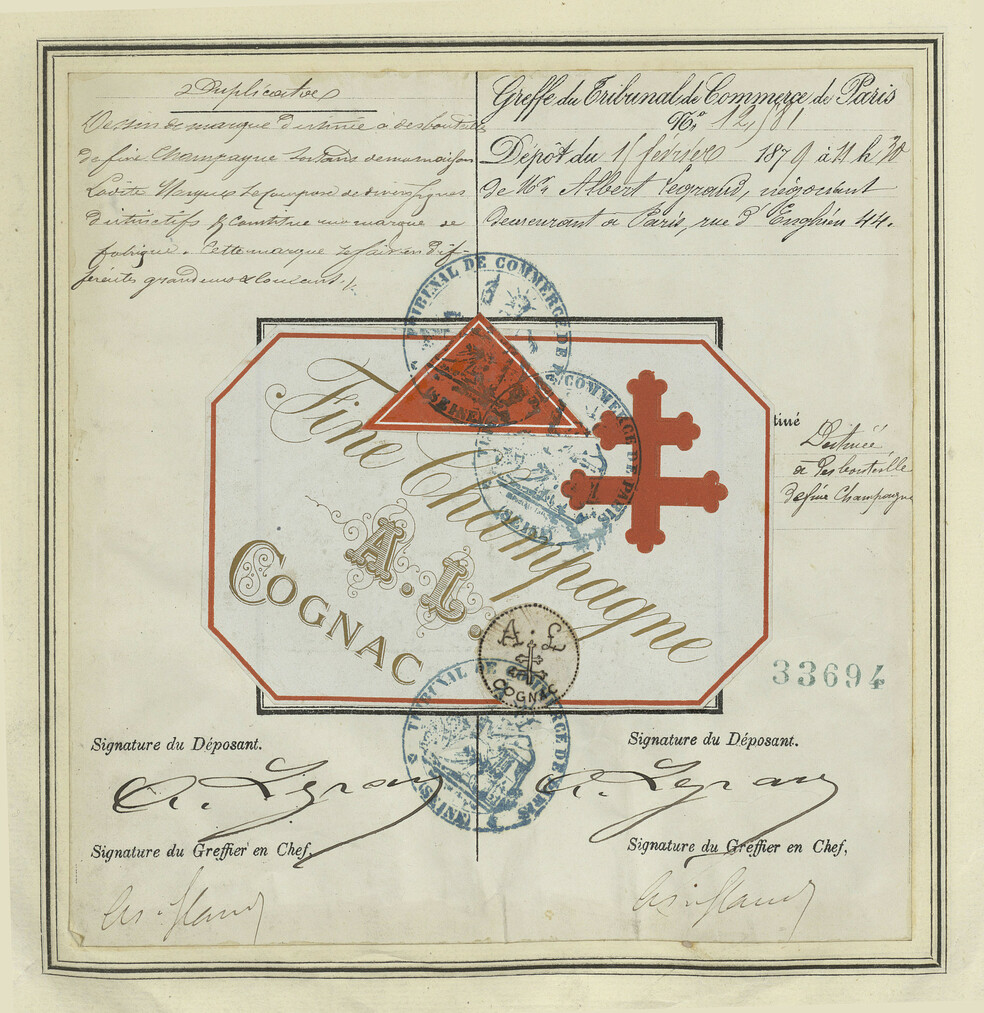 Duplicata
Dessin de marque destinée à des bouteilles
de fine Champagne sortant de ma maison
Ladite Marque se compose de divers signes
Distinctifs & constitue ma marque de
fabrique. Cette marque se fait en dif-
férentes grandeurs & couleurs.
Greffe du Tribunal de Commerce de Paris
No. 12,181
Dépôt du 15 février 1879 à 11 h 30
de Mr. Albert Legrand, négociant
demeurant à Paris, rue d'Enghien 44.
TRIBUNAL DE COMMERCE DE PARIS
SEINE
Fine Champagne
A. L.
COGNAC
TRIBUNAL DE COMMERCE DE PARIS
SEINE
A. L
COGNAC
tiné
Destinée
à des bouteilles
de fine Champagne
33694
TRIBUNAL DE COMMERCE DE PARIS
Signature du Déposant.
Signature du Déposant.
A. Legrand
A. Legrand
Signature du Greffier en Chef.
Signature du Greffier en Chef,